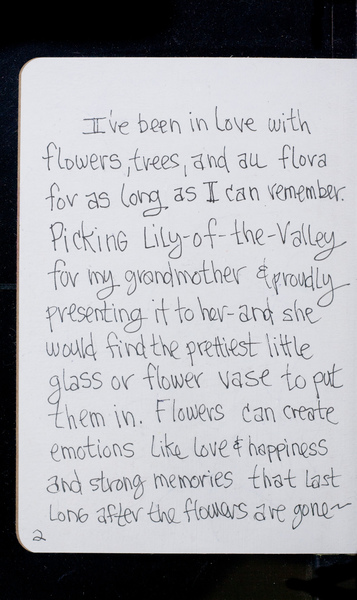 I've been in love with
flowers, trees, and all flora
for as long as I can remember.
Picking Lily-of-the-Valley
for my grandmother & proudly
presenting it to her-and she
would find the prettiest little
glass or flower vase to put
them in. Flowers can create
emotions like love & happiness
and strong memories that last
long after the flowers are gone~
2